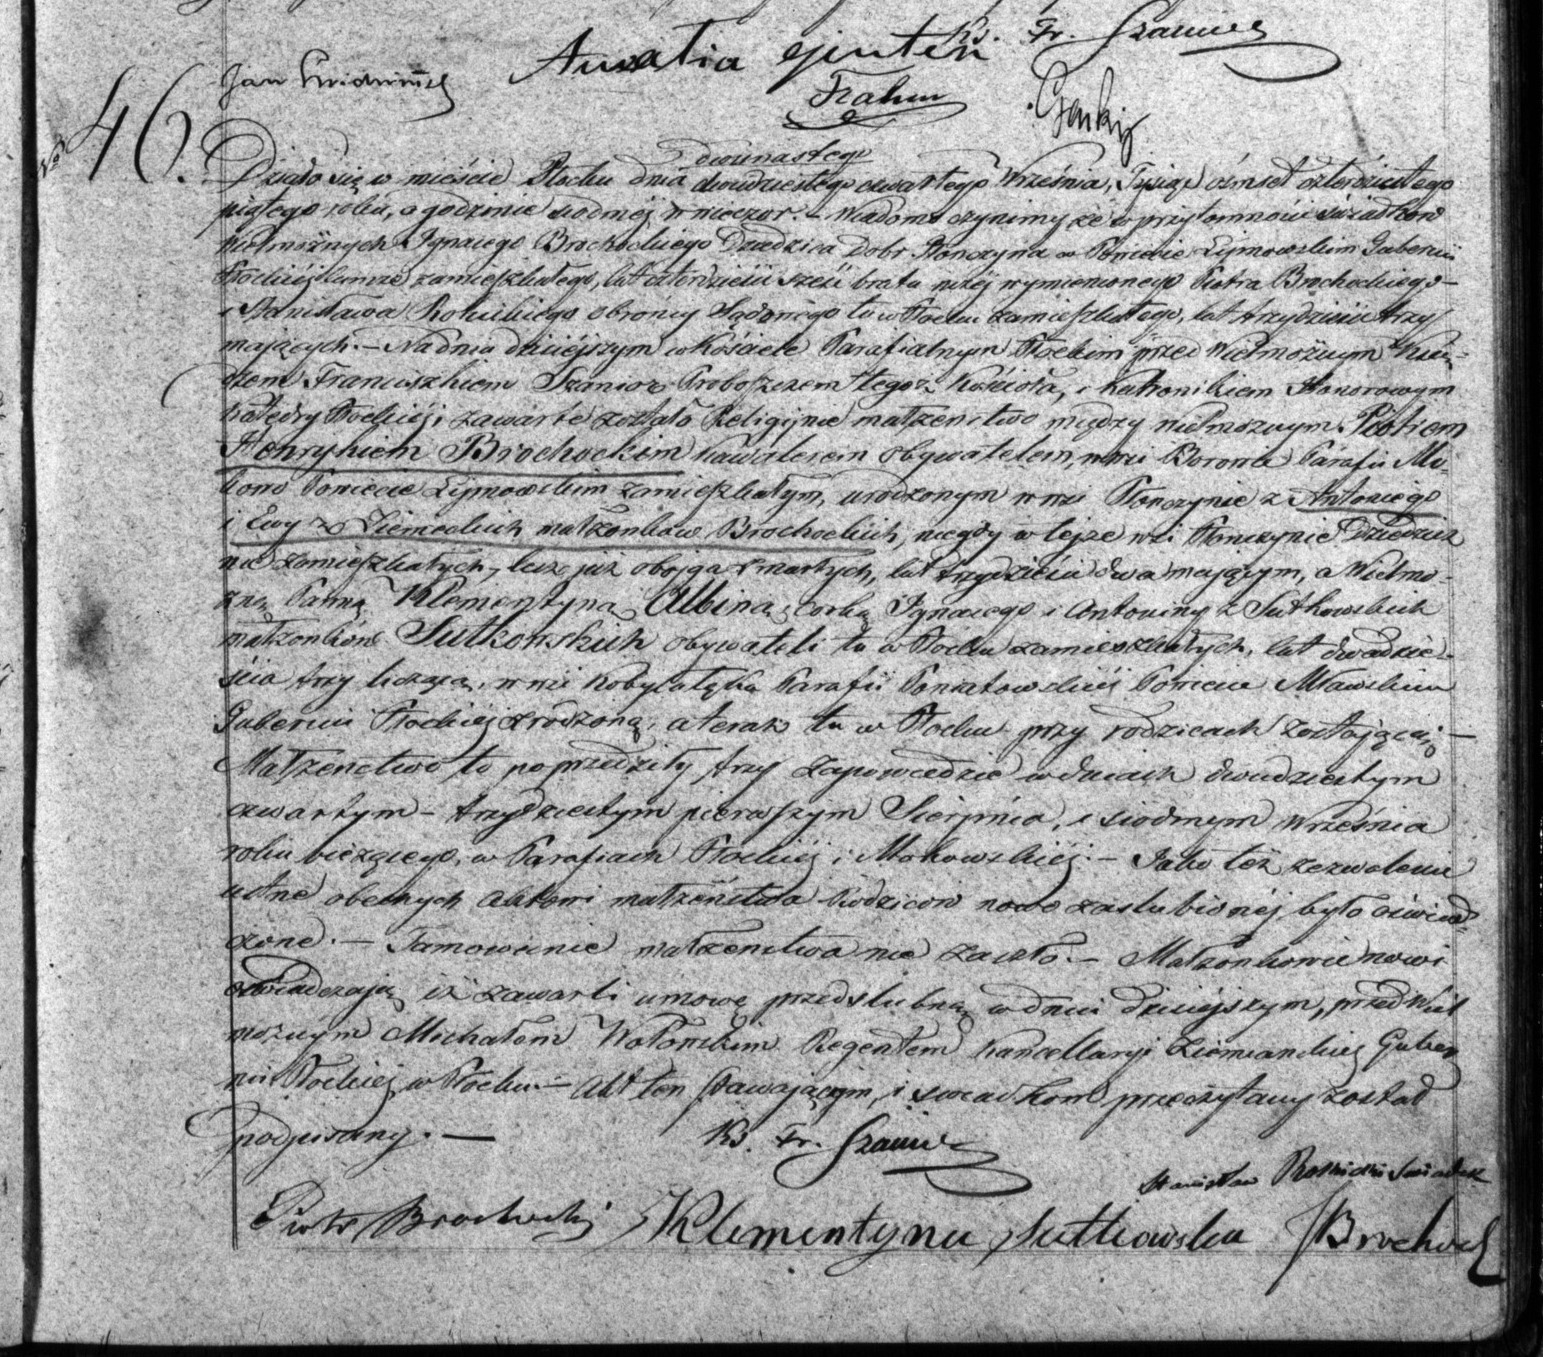 Ks. Fr. Szanior
Jan
№ 46.
dwunastego
Działo się w mieście Płocku dnia dwudziestego czwartego Września, Tysiąc ośmset czterdziestego
piątego roku, o godzinie siodméj w wieczor. – Wiadomo czynimy że w przytomności świadków
wielmożnych Ignacego Brochockiego Dziedzica Dobr Płonczyna w Powiecie Lipnowskim Gubernii
Płockiéj zamieszkałego, lat czterdzieści sześć brata niżéj wymienionego Piotra Brochockiego –
i Stanisława Rokickiego obrońcy Sądowego tu w Płocku zamieszkałego, lat trzydzieści trzy
mających. – Na dniu dzisiéjszym w Kościele Parafialnym Płockim przed Wielmożnym Xię-
dzem Franciszkiem Szanior Proboszczem tegoż Kościoła, i Kanonikiem Honorowym
Katedry Płockiéj zawarte zostało Religijne małżeństwo między wielmożnym Piotrem
Henrykiem Brochockim Kawalerem obywatelem, w wsi Borowo Parafii Mo-
kowo Powiecie Lipnowskim zamieszkałym, urodzonym w wsi Płonczynie z Antoniego
i Ewy z Ziemeckich małżonków Brochockich, niegdy w tejże wsi Płonczynie Dziedzicz
nie zamieszkałych, lecz już obojga zmarłych, lat trzydzieści dwa mającym, a Wielmo-
żną Panną Klementyną Albiną, corką Ignacego i Antoniny z Sutkowskich
małżonków Sutkowskich obywateli tu w Płocku zamieszkałych, lat dwadzie-
ścia trzy liczącą, w wsi Kobyłałęka Parafii Poniatowskiéj Powiecie Mławskim
Gubernii Płockiéj zrodzoną, a teraz tu w Płocku przy rodzicach zostającą –
Małżenstwo to poprzedziły trzy zapowiedzie w dniach dwudziestym
czwartym – trzydziestym pierwszym Sierpnia, i siodmym Września
roku bieżącego, w Parafiach Płockiéj i Mokowskiéj. – Jako też zezwolenie
ustne obecnych aktowi małżeństwa Rodzicow nowo zaslubionéj było oświad-
czone. – Tamowanie małżenstwa nie zaszło. – Małżonkowie nowi
oświadczają iż zawarli umowę przedslubną w dniu dzisiéjszym, przed Wiel
możnym Michałem Wołowskim Regentem Kancellaryi Ziemianskiéj Guber
nii Płockiéj w Płocku. – Akt ten stawającym, i swiadkom przeczytany został
podpisany. –
Ks. Fr. Szanior
Stanisław Rokicki Swiadek
Piotr Brochocki Klementyna Sutkowska Brochocki